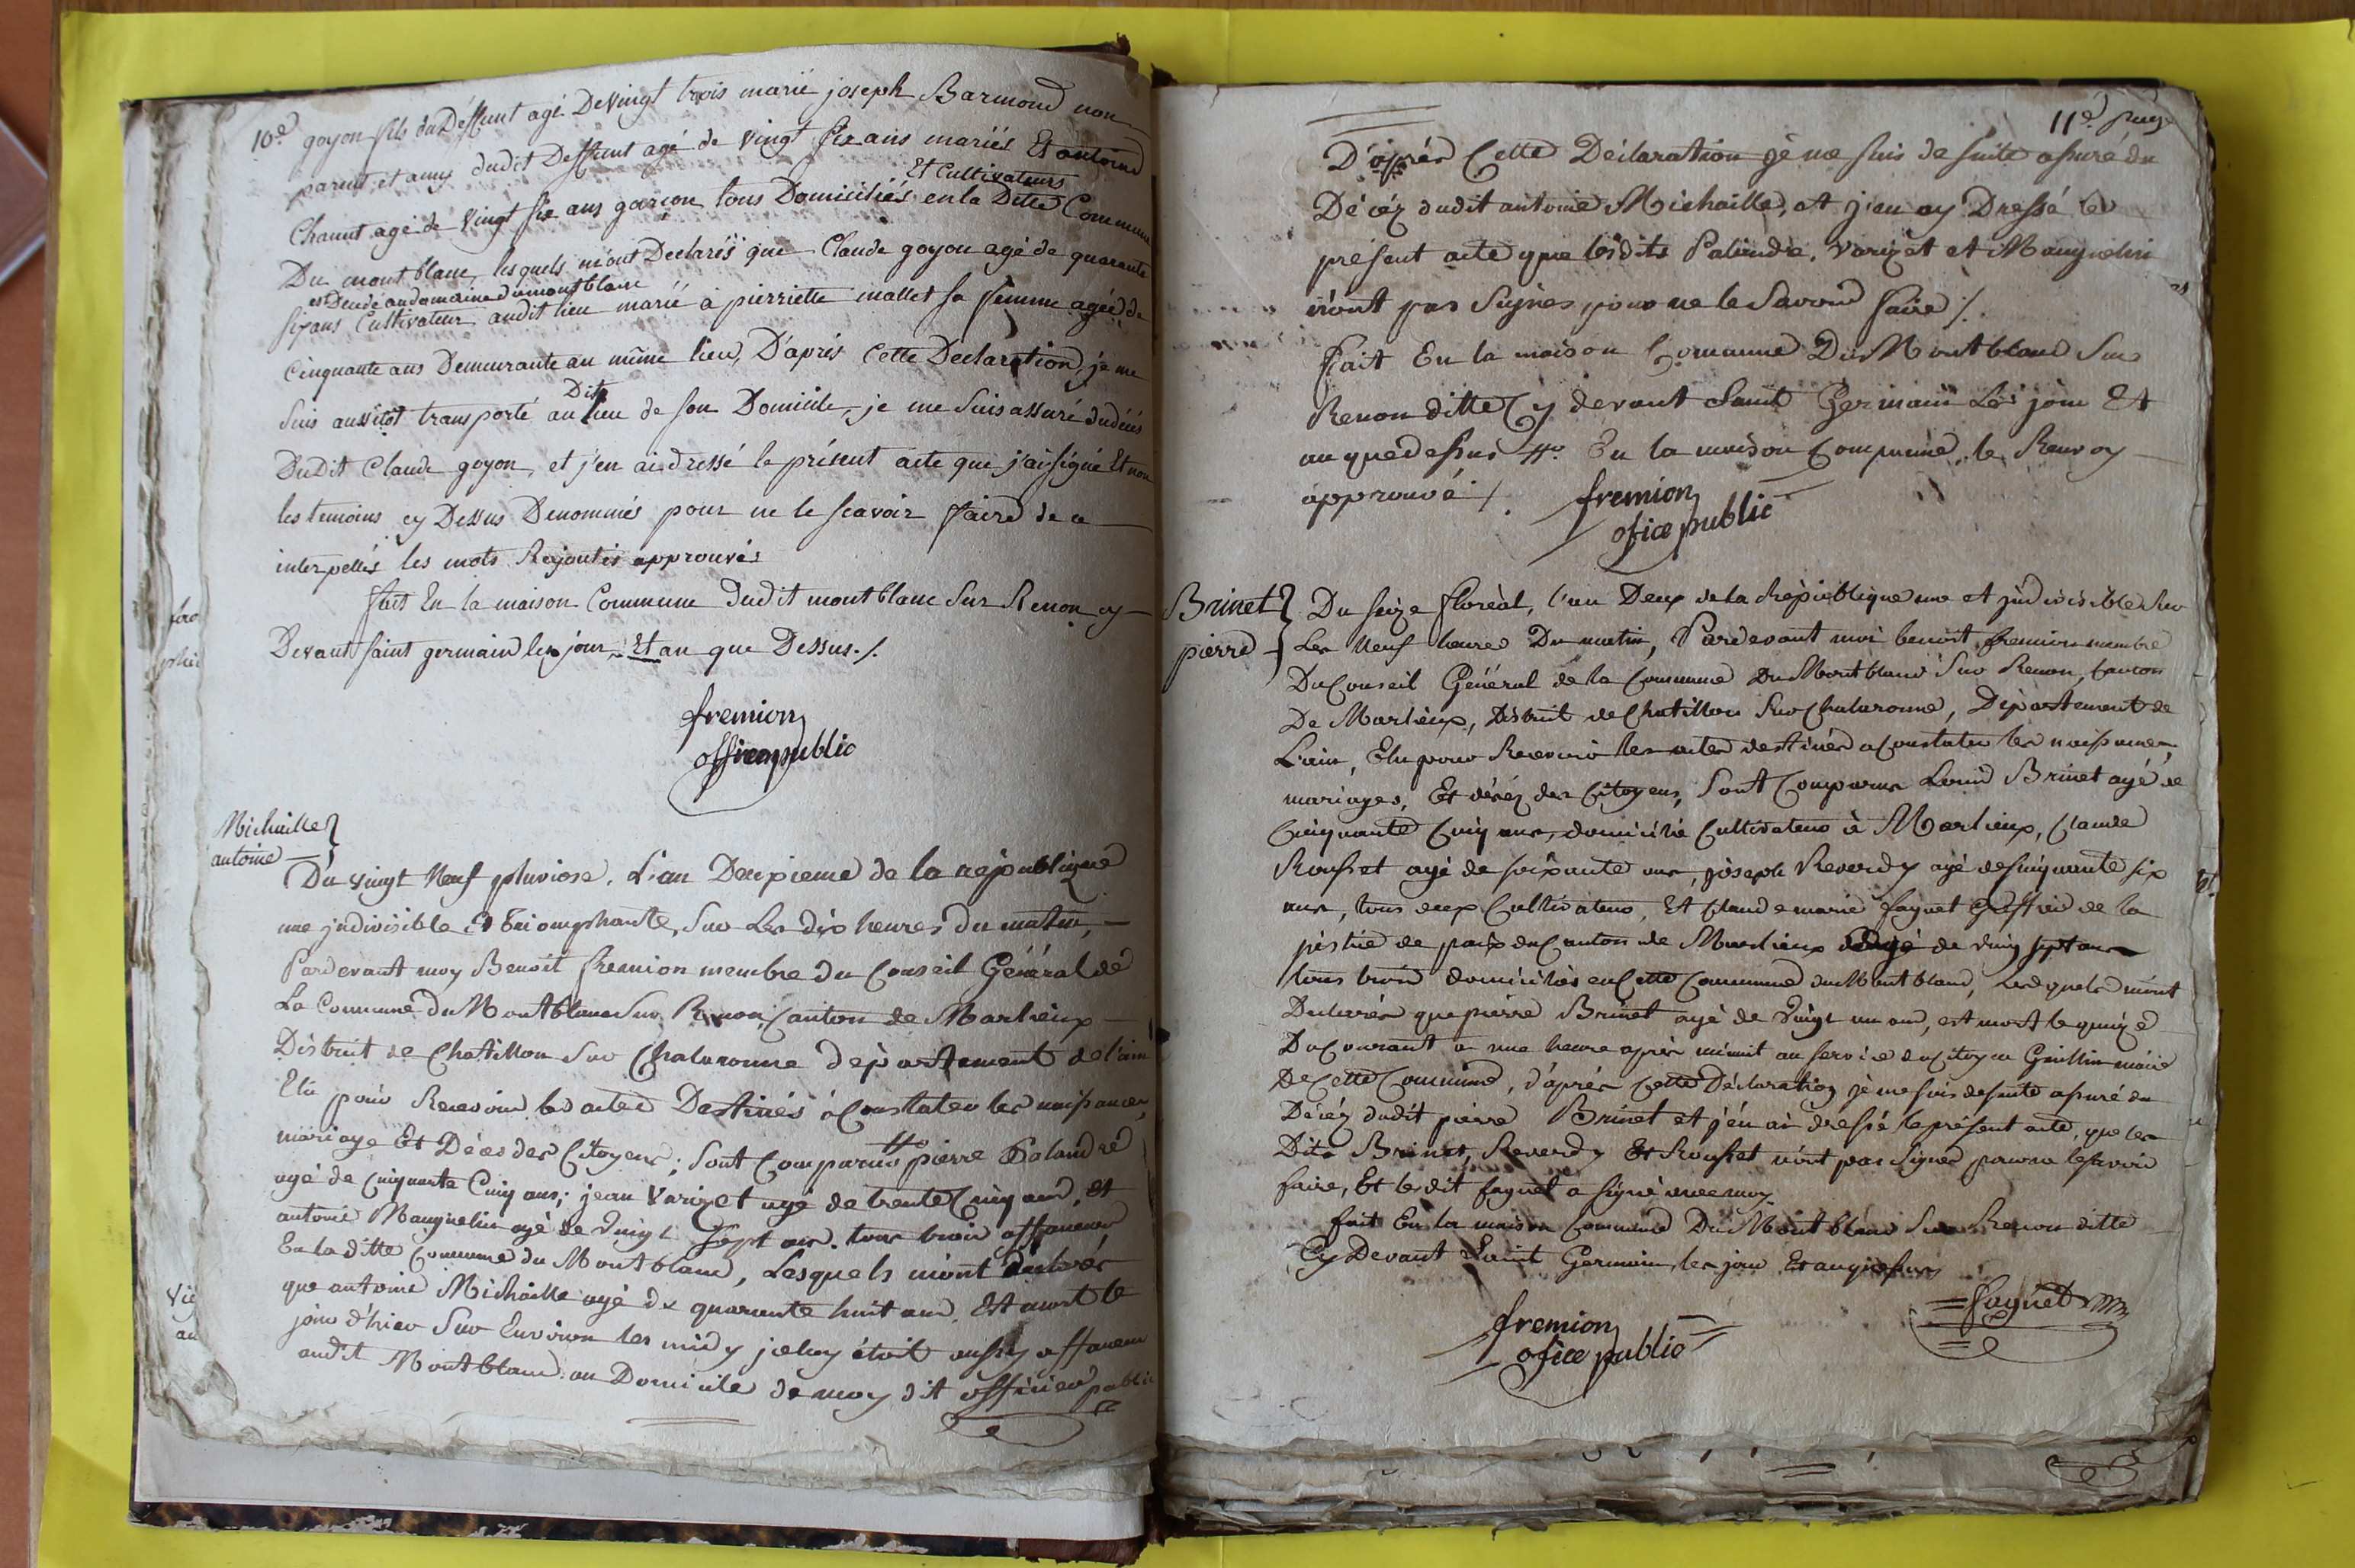 10e goyon fils du Deffunt agé De vingt trois marié joseph Barmond non
parent et amy dudit Deffunt agé de vingt six ans mariés Et antoine
Et Cultivateurs
Chanut agé de vingt six ans garçon tous Domiciliés en la Ditte Commune
Du mont blanc, lesquels m'ont Declarés que Claude goyon agé de quarante
est Decédé au domaine du mont blanc
six ans Cultivateur audit lieu marié à pierriette mallet sa femme agée de
Cinquante ans Demeurante au même lieu, D'après Cette Declaration, je me
Dit
suis aussitôt transporté au lieu de son Domicile, je me suis assuré du décés
DuDit Claude goyon, et j'en ai dressé le présent acte que j'ai signé Et non
les temoins cy Dessus Denommés pour ne le scavoir faire de ce
interpellés les mots Rajoutés approuvés
fait En la maison Commune dudit mont blanc sur Renon cy
Devant saint germain les jour Et an que Dessus ./.
fremion
officier public
Michaille
antoine
Du vingt Neuf pluviose, L'an Deuxieme de la république
une jndivisible Et triomphante, Sur Les dix heures du matin,
Pardevant moy Benoit fremion membre du Conseil Général de
La Commune du Montblanc Sur Renon, Canton de Marlieux
District de Chatillon Sur Chalaronne département de l'ain
Elu pour Recevoir les actes Destinés à Constater les naissances,
mariage Et Décès des Citoyens; Sont Comparus # pierre Palandré
agé de Cinquante Cinq ans; jean Varizet agé de trente Cinq ans, et
antoine Mauguelin agé de vingt sept ans. tous trois affaneurs
En la ditte Commune du Montblanc, Lesquels m'ont déclarés
que antoine Michaille agé de quarante huit ans, Est mort le
jour d'hier Sur Environ les midy jceluy étoit aussy affaneur
audit Montblanc au Domicile de moy dit officier public
11e page
D'après Cette Déclaration je me suis de suite assuré du
Décéz dudit antoine Michaille, et j'en ay Dressé le
présent acte que lesdits Palandre, Varizet et Mauguelin
n'ont pas Signés, pour ne le Savoir faire ./.
Fait En la maison Commune Du Montblanc Sur
Renon ditte Cy devant Saint Germain Les jour Et
an que dessus #. En la maison Commune, le Renvoy
approuvé ./.
fremion
ofice public
Brinet
pierre
Du seize floréal, l'an Deux de la République une et jndivisible Sur
Les Neuf heures Du matin, Pardevant moi benoit fremion membre
Du Conseil Général de la Commune Du Montblanc Sur Renon, Canton
De Marlieux, District de Chatillon Sur Chalaronne, Département de
L'ain, Elu pour Recevoir les actes destinés a Constater les naissances,
mariages, Et décéz des Citoyens, Sont Comparus Louis Brinet agé de
Cinquante Cinq ans, domicilié Cultivateur à Marlieux, Claude
Rousset agé de soixante ans, joseph Reverdy agé de cinquante six
ans, tous deux Cultivateurs, Et Claude marie faguet Greffier de la
justice de paix du Canton de Marlieux agé de vingt sept ans
tous trois domiciliés en Cette Commune du Montblanc, Lesquels m'ont
Déclarés que pierre Brinet agé de vingt un ans, est mort le quinze
Du Courant a une heure après minuit au service du Citoyen Guillin maire
De Cette Commune, d'après Cette Déclaration je me suis de suite assuré du
Décéz dudit pierre Brinet et j'en ai dressé le présent acte, que les
Dits Brinet, Reverdy Et Rousset n'ont pas Signés pour ne le savoir
faire, Et ledit faguet a signé avec moy.
fait En la maison Commune Du Montblanc Sur Renon ditte
Cy Devant Saint Germain, les jour Et an que dessus
fremion
ofice public
faguet